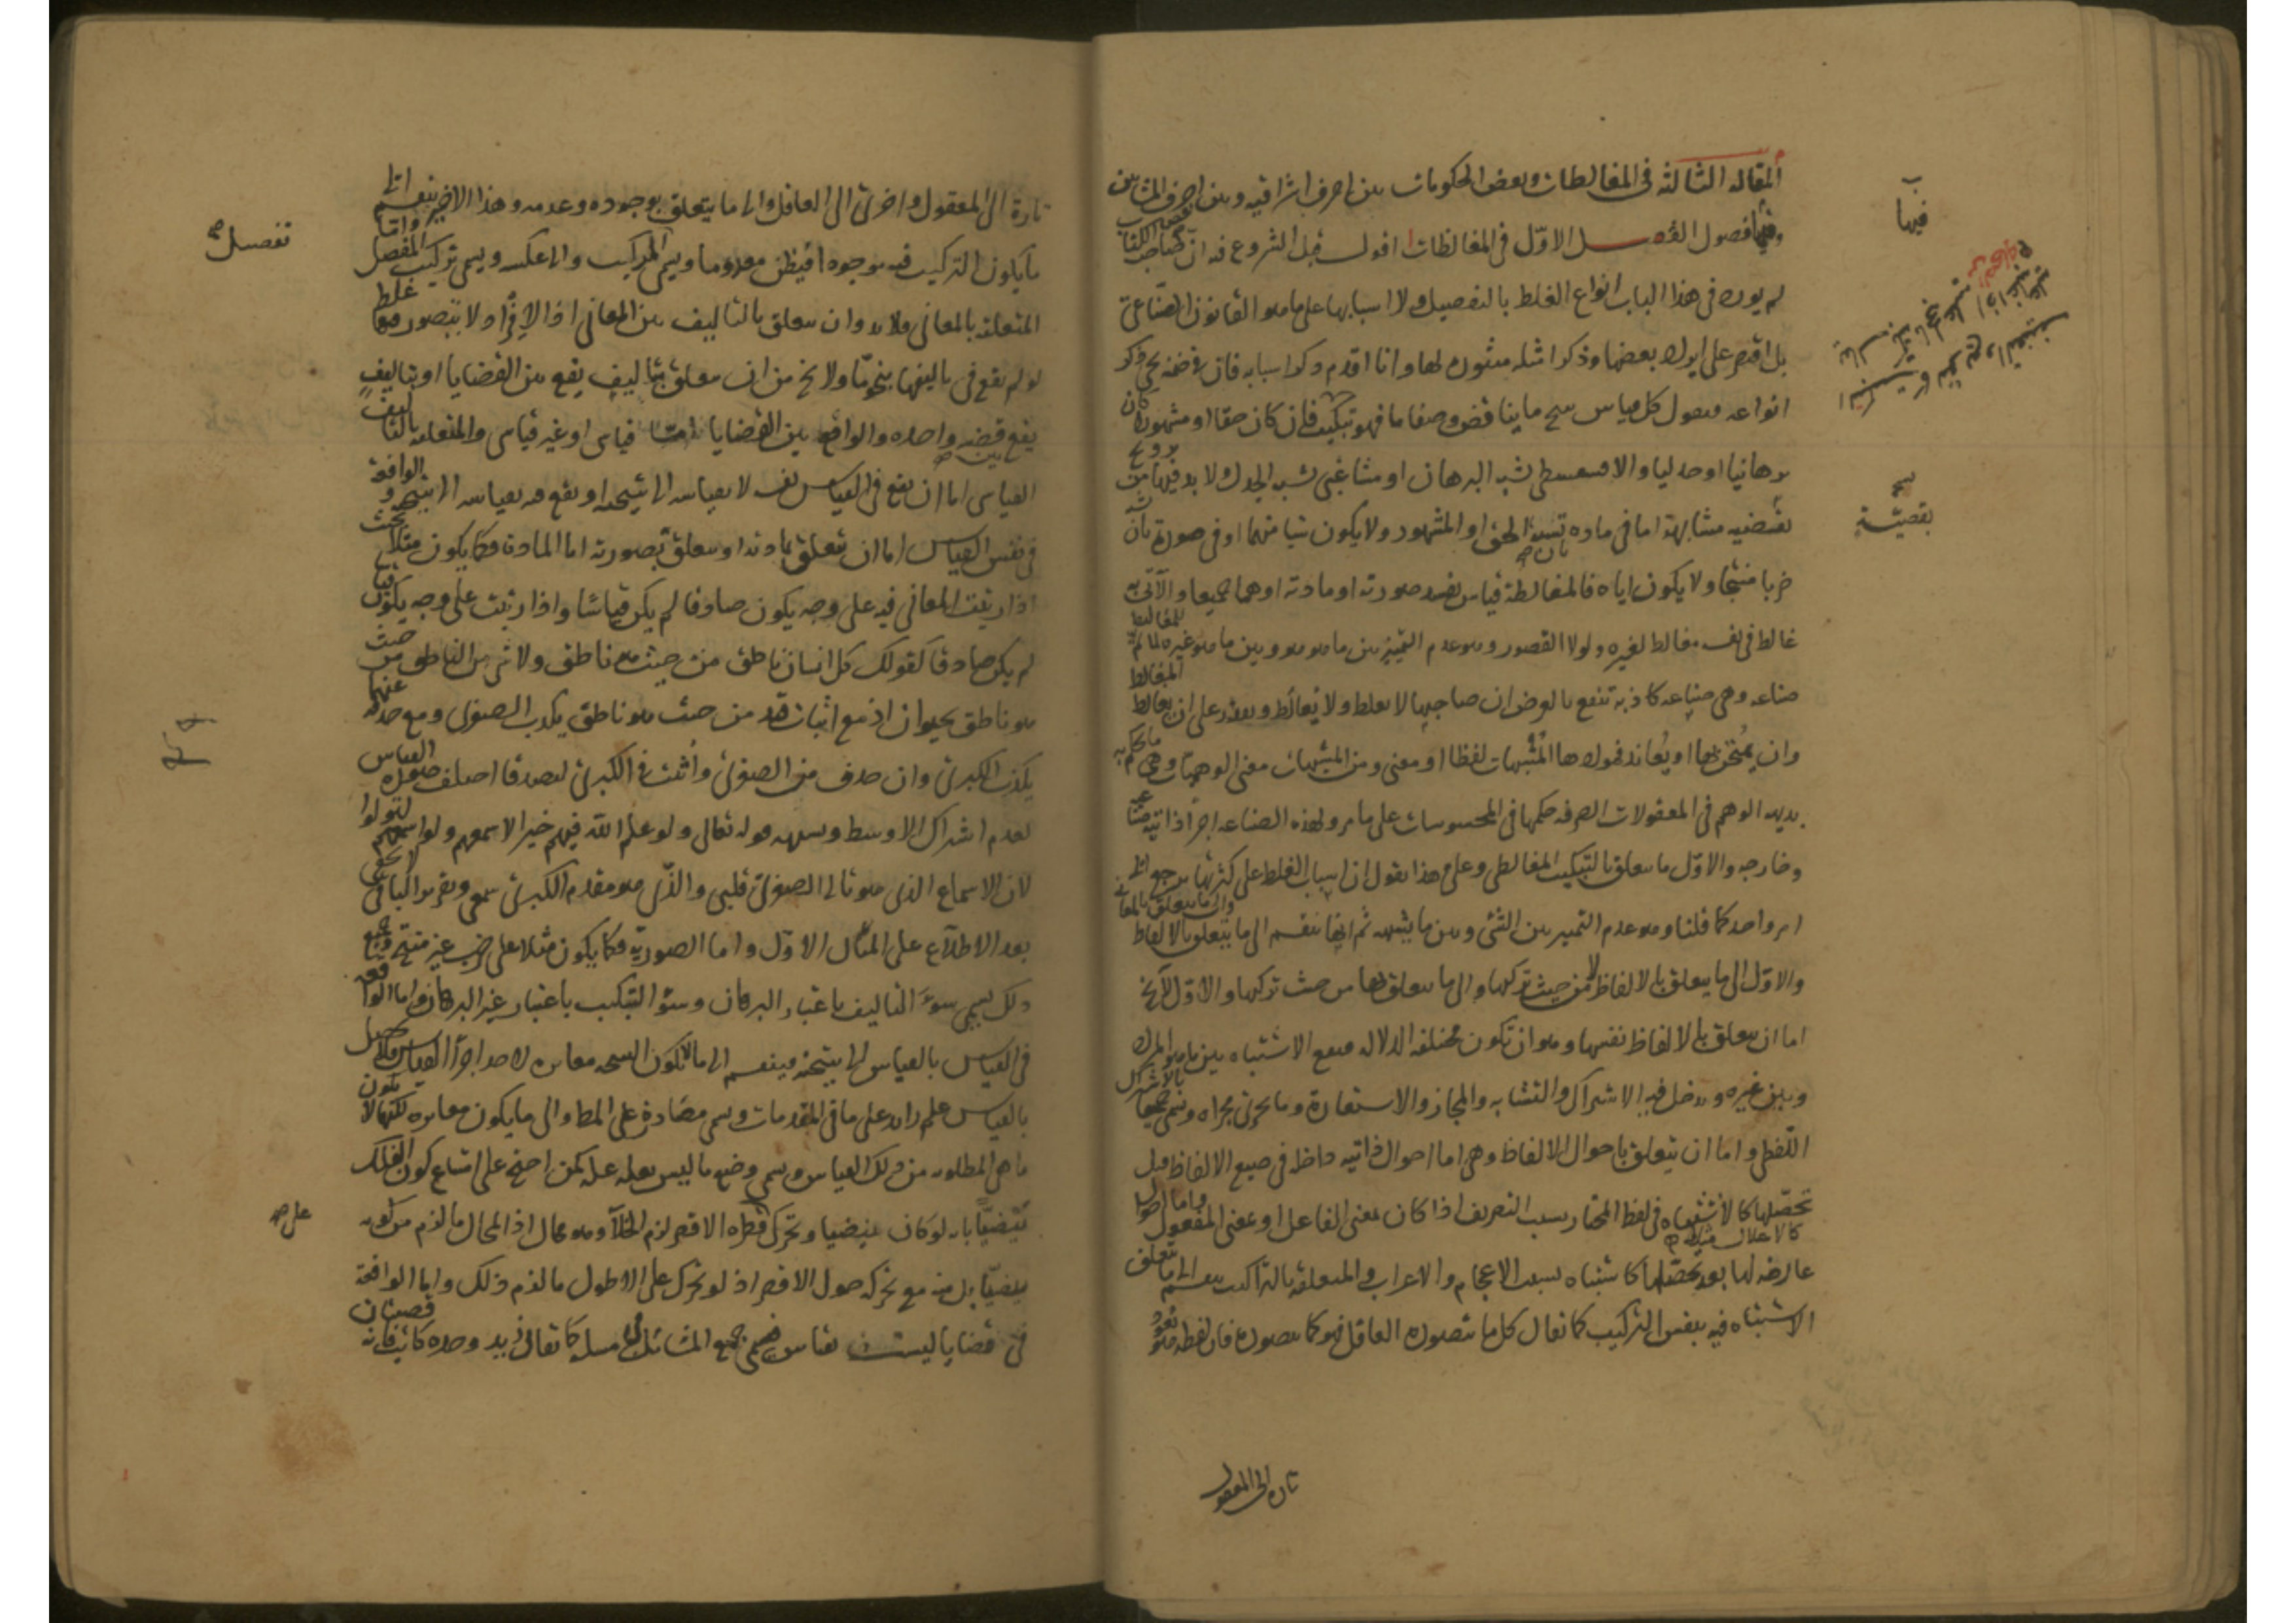 المقاله الثالثه فى المغالطات وبعض الحكومات بين احرف اشراقيه وبين احرف المشائين
وفيها فصول الفصل الاوّل فى المغالطات اقول قبل الشروع فيه انّ صاحب الكتاب
لم يورد فى هذا الباب انواع الغلط بالتفصيل ولا اسبابها على ما هو القانون الصناعى
بل اقتصر على ايراد بعضها وذكر امثله لها وانا اقدم ذكر اسبابه فان فى ضمنه يجئ ذكر
انواعه فنقول كل قياس ينتج ما يناقض وضعا ما فهو تبكيت فان كان حقا او مشهورا كان
برهانيا او جدليا والا فسفسطى يشبه البرهان او مشاغبى يشبه الجدل ولا بد فيهما من
مشابهة اما فى ماده بان تشبه الحق او المشهور ولا يكون شيئا منهما او فى صورة بان
ضربا منتجا ولا يكون اياه فالمغالطة قياس يفسد صورته او مادته او هما جميعا والآتى به
غالط فى نفسه مغالط لغيره ولولا القصور وهو عدم التمييز بين ما هو هو وبين ما هو غيره لما تم للمغالط
صناعه وهى صناعه كاذبه تنفع بالعرض ان صاحبها لا يغلط ولا يُغالَط ويقدر على ان يغالط المغالط
وان يمتحن بها او يُعاند فموادها المشبهات لفظا او معنى ومن المشبهات معنى الوهميات وهى ما يحكم به
بديهه الوهم فى المعقولات الصرفه حكمها فى المحسوسات على ما مر ولهذه الصناعه اجزاء ذاتيه صناعيه
وخارجه والاوّل ما يتعلق بالتبكيت المغالطى وعلى هذا نقول ان اسباب الغلط على كثرتها يرجع الى
امر واحد كما قلنا وهو عدم التمييز بين الشئ وبين ما يشبهه ثم انها تنقسم الى ما يتعلق بالالفاظ والى ما يتعلق بالمعانى
والاوّل الى ما يتعلق بالالفاظ لا من حيث تركبها والى ما يتعلق بها من حيث تركبها والاوّل لا يخ
اما ان يتعلق بالالفاظ نفسها وهو ان تكون مختلفه الدلاله فيقع الاشتباه بين ما هو المراد
وبين غيره ويدخل فيه الاشتراك والتشابه والمجاز والاستعارة وما يجرى مجراه ويسمى جميعا بالاشتراك
اللفظى واما ان يتعلق باحوال الالفاظ وهى اما احوال ذاتيه داخله فى صيغ الالفاظ قبل
تحصّلها كالاشتباه فى لفظ المختار بسبب التصريف اذا كان بمعنى الفاعل او بمعنى المفعول واما احوال
عارضه لها بعد تحصّلها كاشتباه بسبب الاعجام والاعراب والمتعلقه بالتراكيب تنقسم الى ما يتعلق
الاشتباه فيه بنفس التركيب كما يقال كل ما يتصوره العاقل فهو كما يتصوره فان لفظه هو يعود
تاره الى المعقول
فيها
بقضيّة
تارة الى المعقول واخرى الى العاقل والى ما يتعلق بوجوده وعدمه وهذا الاخير ينقسم الى
ما يكون التركيب فيه موجودا فيظن معدوما ويسمى المركب والا عكسه ويسمى تركيب المفصل واما
المتعلقه بالمعانى فلا بد وان يتعلق بالتاليف بين المعانى اذ الافراد لا يتصور فيها غلط
لو لم يقع فى تاليفها بنحوٍ ما ولا يخ من ان يتعلق بتاليف يقع بين القضايا او بتاليفٍ
يقع بين قضيه واحده والواقع بين القضايا اما قياس او غير قياس والمتعلقه بالتاليف
القياسى اما ان يقع فى القياس نفسه لا بقياسه الى نتيجته او يقع فيه بقياسه الى نتيجته والواقعة
فى نفس القياس اما ان يتعلق بمادته او يتعلق بصورته اما المادة فكما يكون مثلا بحيث
اذا رتبت المعانى فيه على وجه يكون صادقا لم يكن قياسا واذا رتبت على وجه يكون قياسا
لم يكن صادقا كقولك كل انسان ناطق من حيث هو ناطق ولا شئ من الناطق من حيث
هو ناطق بحيوان اذ مع اثبات قيد من حيث هو ناطق يكذب الصغرى ومع حذفه عنهما
يكذب الكبرى وان حذف من الصغرى واُثبت فى الكبرى لتصدقا اختلف صوره القياس
لعدم اشتراك الاوسط ويشبهه قوله تعالى ولو علم الله فيهم خيرا لاسمعهم ولو اسمعهم لتولوا
لان الاسماع الذى هو تالى الصغرى قلبى والذى هو مقدم الكبرى سمعى وتقريره لا يخفى
بعد الاطلاع على المثال الاوّل واما الصوريّه فكما يكون مثلا على ضرب غير منتج وجميع
ذلك يسمى سوء التاليف باعتبار البرهان وسوء التبكيت باعتبار غير البرهان واما الواقعه
فى القياس بالقياس الى نتيجته فينقسم الى ما لا يكون النتيجه مغايره لاحد اجزاء القياس فلا يحصل
بالقياس علم زايد على ما فى المقدمات ويسمى مصادرة على المط والى ما يكون مغايره لكنها لا يكون
ما هى المطلوب من ذلك القياس ويسمى وضع ما ليس بعله عله كمن احتج على امتناع كون الفلك
بيضيّا بانه لو كان بيضيا وتحرك على قطره الاقصر لزم الخلآ وهو محال اذ المحال ما لزم من كونه
بيضيّا بل منه مع تحركه حول الاقصر اذ لو تحرك على الاطول ما لزم ذلك واما الواقعة
فى قضايا ليست بقياس فيسمى جمع المسائل فى مسله كما يقال زيد وحده كاتب فانه قضيتان
تفصيل صح
على صح